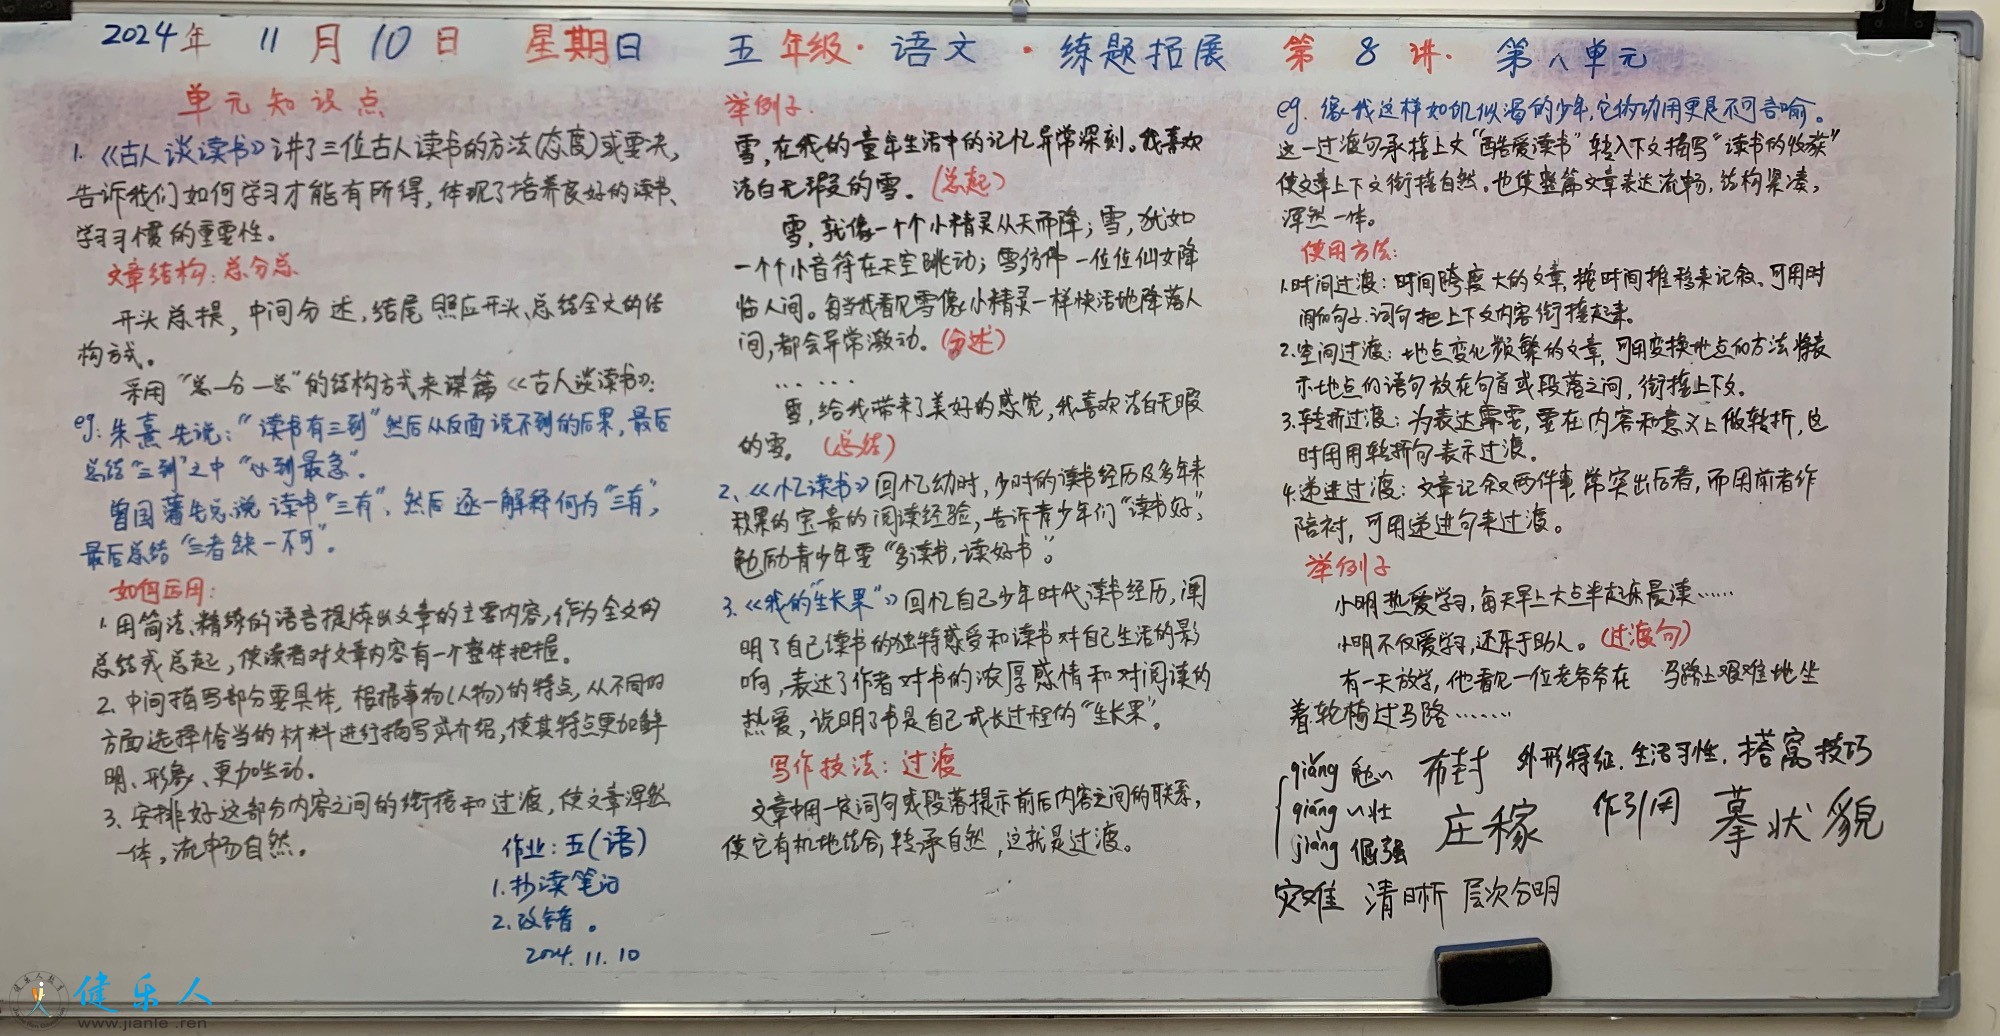 2024年 11月10日 星期日 五年级·语文·练题拓展 第8讲·第八单元
单元知识点
1.《古人谈读书》讲了三位古人读书的方法(态度)或要决,
告诉我们如何学习才能有所得,体现了培养良好的读书、
学习习惯的重要性。
文章结构:总分总
开头总提,中间分述,结尾照应开头、总结全文的结
构方式。
采用“总一分一总”的结构方式来谋篇《古人谈读书》:
eg:朱熹先说:“读书有三到”然后从反面说不到的后果,最后
总结“三到”之中“心到最急”。
曾国藩先总说读书“三有”,然后逐一解释何为“三有”,
最后总结“三者缺一不可”。
如何运用:
1.用简洁、精练的语言提炼出文章的主要内容,作为全文的
总结或总起,使读者对文章内容有一个整体把握。
2.中间描写部分要具体,根据事物(人物)的特点,从不同的
方面选择恰当的材料进行描写或介绍,使其特点更加鲜
明、形象、更加生动。
3.安排好这部分内容之间的衔接和过渡,使文章浑然
一体,流畅自然。
作业:五(语)
1.抄读笔记
2.改错。
2024.11.10
举例子:
雪,在我的童年生活中的记忆异常深刻。我喜欢
洁白无瑕的雪。(总起)
雪,就像一个个小精灵从天而降;雪,犹如
一个个小音符在天空跳动;雪,仿佛一位位仙女降
临人间。每当我看见雪像小精灵一样快活地降落人
间,都会异常激动。(分述)
......
雪,给我带来了美好的感觉,我喜欢洁白无暇
的雪。(总结)
2、《忆读书》回忆幼时,少时的读书经历及多年来
积累的宝贵的阅读经验,告诉青少年们“读书好”,
勉励青少年要“多读书,读好书”。
3.《我的“生长果”》回忆自己少年时代读书经历,阐
明了自己读书的独特感受和读书对自己生活的影
响,表达了作者对书的浓厚感情和对阅读的
热爱,说明了书是自己成长过程的“生长果”。
写作技法:过渡
文章中用一定词句或段落提示前后内容之间的联系,
使它有机地结合,转承自然,这就是过渡。
eg.像我这样如饥似渴的少年,它的功用更是不可言喻。
这一过渡句承接上文“酷爱读书”转入下文描写“读书的收获”
使文章上下文衔接自然。也使整篇文章表达流畅,结构紧凑,
浑然一体。
使用方法:
1.时间过渡:时间跨度大的文章,按时间推移来记叙、可用时
间的句子.词句把上下文内容衔接起来。
2.空间过渡:地点变化频繁的文章,可用变换地点的方法将表
示地点的语句放在句首或段落之间,衔接上下文。
3.转折过渡:为表达需要,要在内容和意义上做转折,这
时用用转折句表示过渡。
4.递进过渡:文章记叙两件事,常突出后者,而用前者作
陪衬,可用递进句来过渡。
举例子
小明热爱学习,每天早上六点半起床晨读……
小明不仅爱学习,还乐于助人。(过渡句)
有一天放学,他看见一位老爷爷在 马路上艰难地坐
着轮椅过马路……
qiǎng 勉\~ 布封 外形特征.生活习性,搭窝技巧
qiáng \~壮 庄稼 作引用 摹状貌
jiàng 倔强
灾难 清晰 层次分明
健乐人
www.jianle.ren